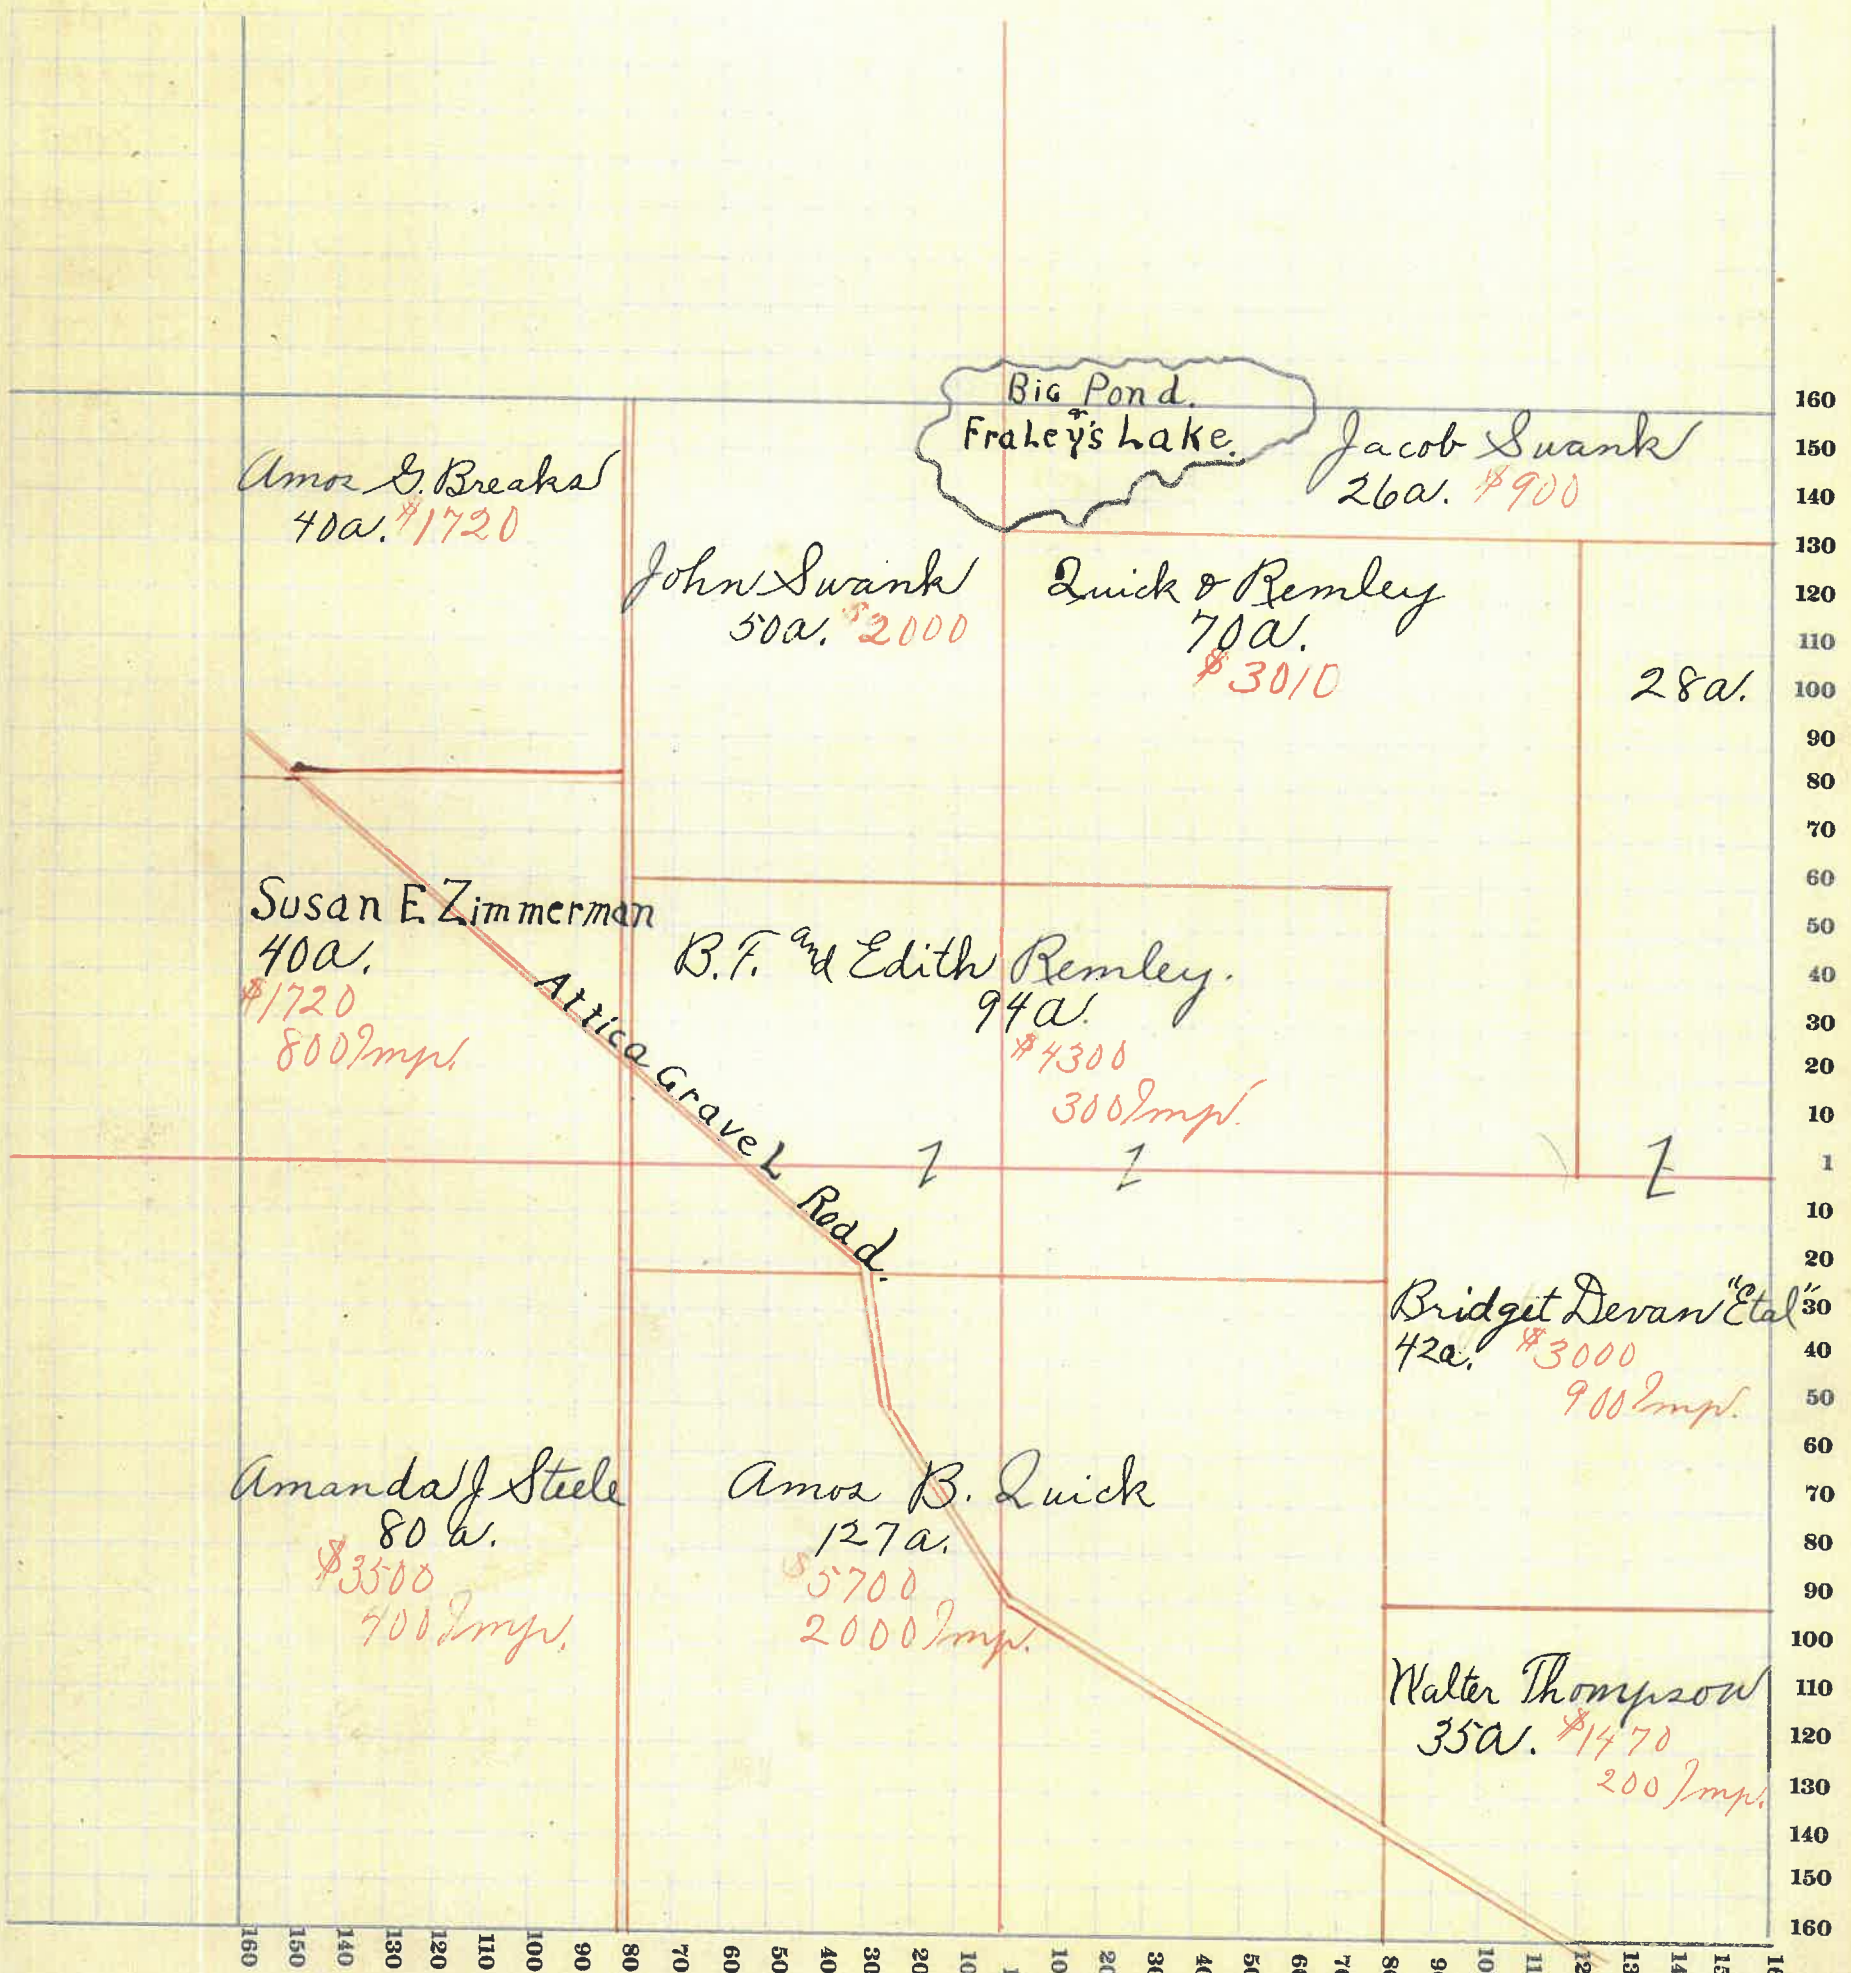 Big Pond.
or
Fraley's Lake.
Jacob Swank
26a. $900
Amos G. Breaks
40a. $1720
John Swank
50a. $2000
Quick & Remley
70a.
$3010
28a.
Susan E Zimmerman
40a.
$1720
800 Imp.
B.F. and Edith Remley.
94a.
$4300
300 Imp.
Attica Gravel Road.
Z
Z
Z
Bridget Devan "Etal"
42a. $3000
900 Imp.
Amanda J Steele
80 a.
$3500
Imp.
Amos B. Quick
127a.
$5700
2000 Imp.
Walter Thompson
35a. $1470
200 Imp.
160
150
140
130
120
110
100
90
80
70
60
50
40
30
20
10
1
10
20
30
40
50
60
70
80
90
100
110
120
130
140
150
160
160 150 140 130 120 110 100 90 80 70 60 50 40 30 20 10 1 10 20 30 40 50 60 70 80 90 10 11 12 13 14 15 16